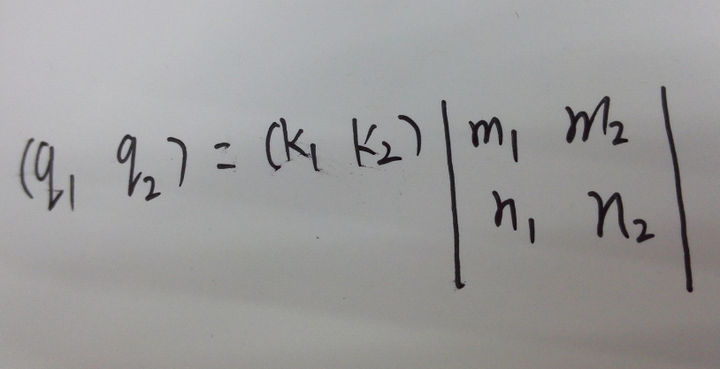 (q₁ q₂) = (k₁ k₂) | m₁ m₂ |
| n₁ n₂ |